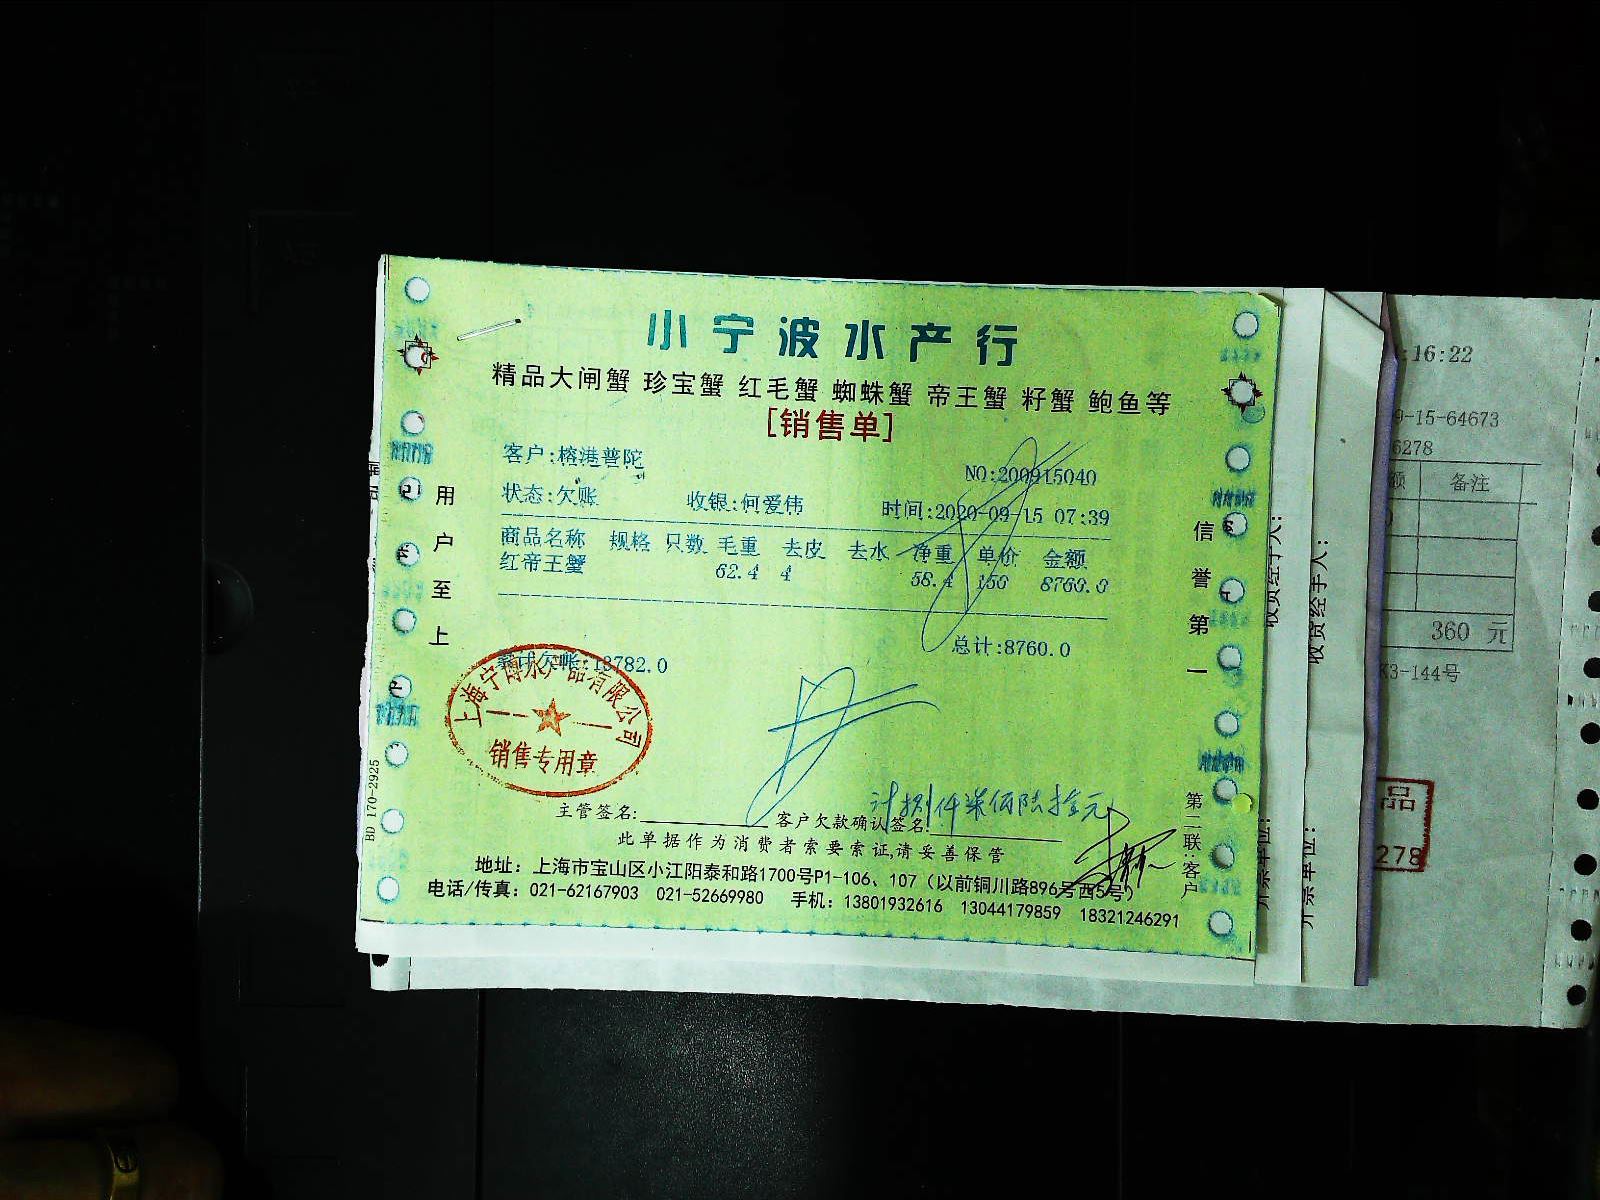 小宁波水产行
精品大闸蟹 珍宝蟹 红毛蟹 蜘蛛蟹 帝王蟹 籽蟹 鲍鱼等
[销售单]
客户:榕港普陀
NO:200915040
状态:欠账 收银:何爱伟 时间:2020-09-15 07:39
商品名称 规格 只数 毛重 去皮 去水 净重 单价 金额
红帝王蟹 62.4 4 58.4 150 8760.0
总计:8760.0
欠帐:18782.0
上海宁博水产品有限公司
销售专用章
用户至上
信誉第一
计捌仟柒佰陆拾元
主管签名: 客户欠款确认签名:
此单据作为消费者索要索证,请妥善保管
地址：上海市宝山区小江阳泰和路1700号P1-106、107（以前铜川路896号西5号）
电话/传真：021-62167903 021-52669980 手机：13801932616 13044179859 18321246291
第二联:客户
BD 170-2925
收货经手人：
收货经手人：
:16:22
9-15-64673
6278
额 备注
360 元
K3-144号
品
278